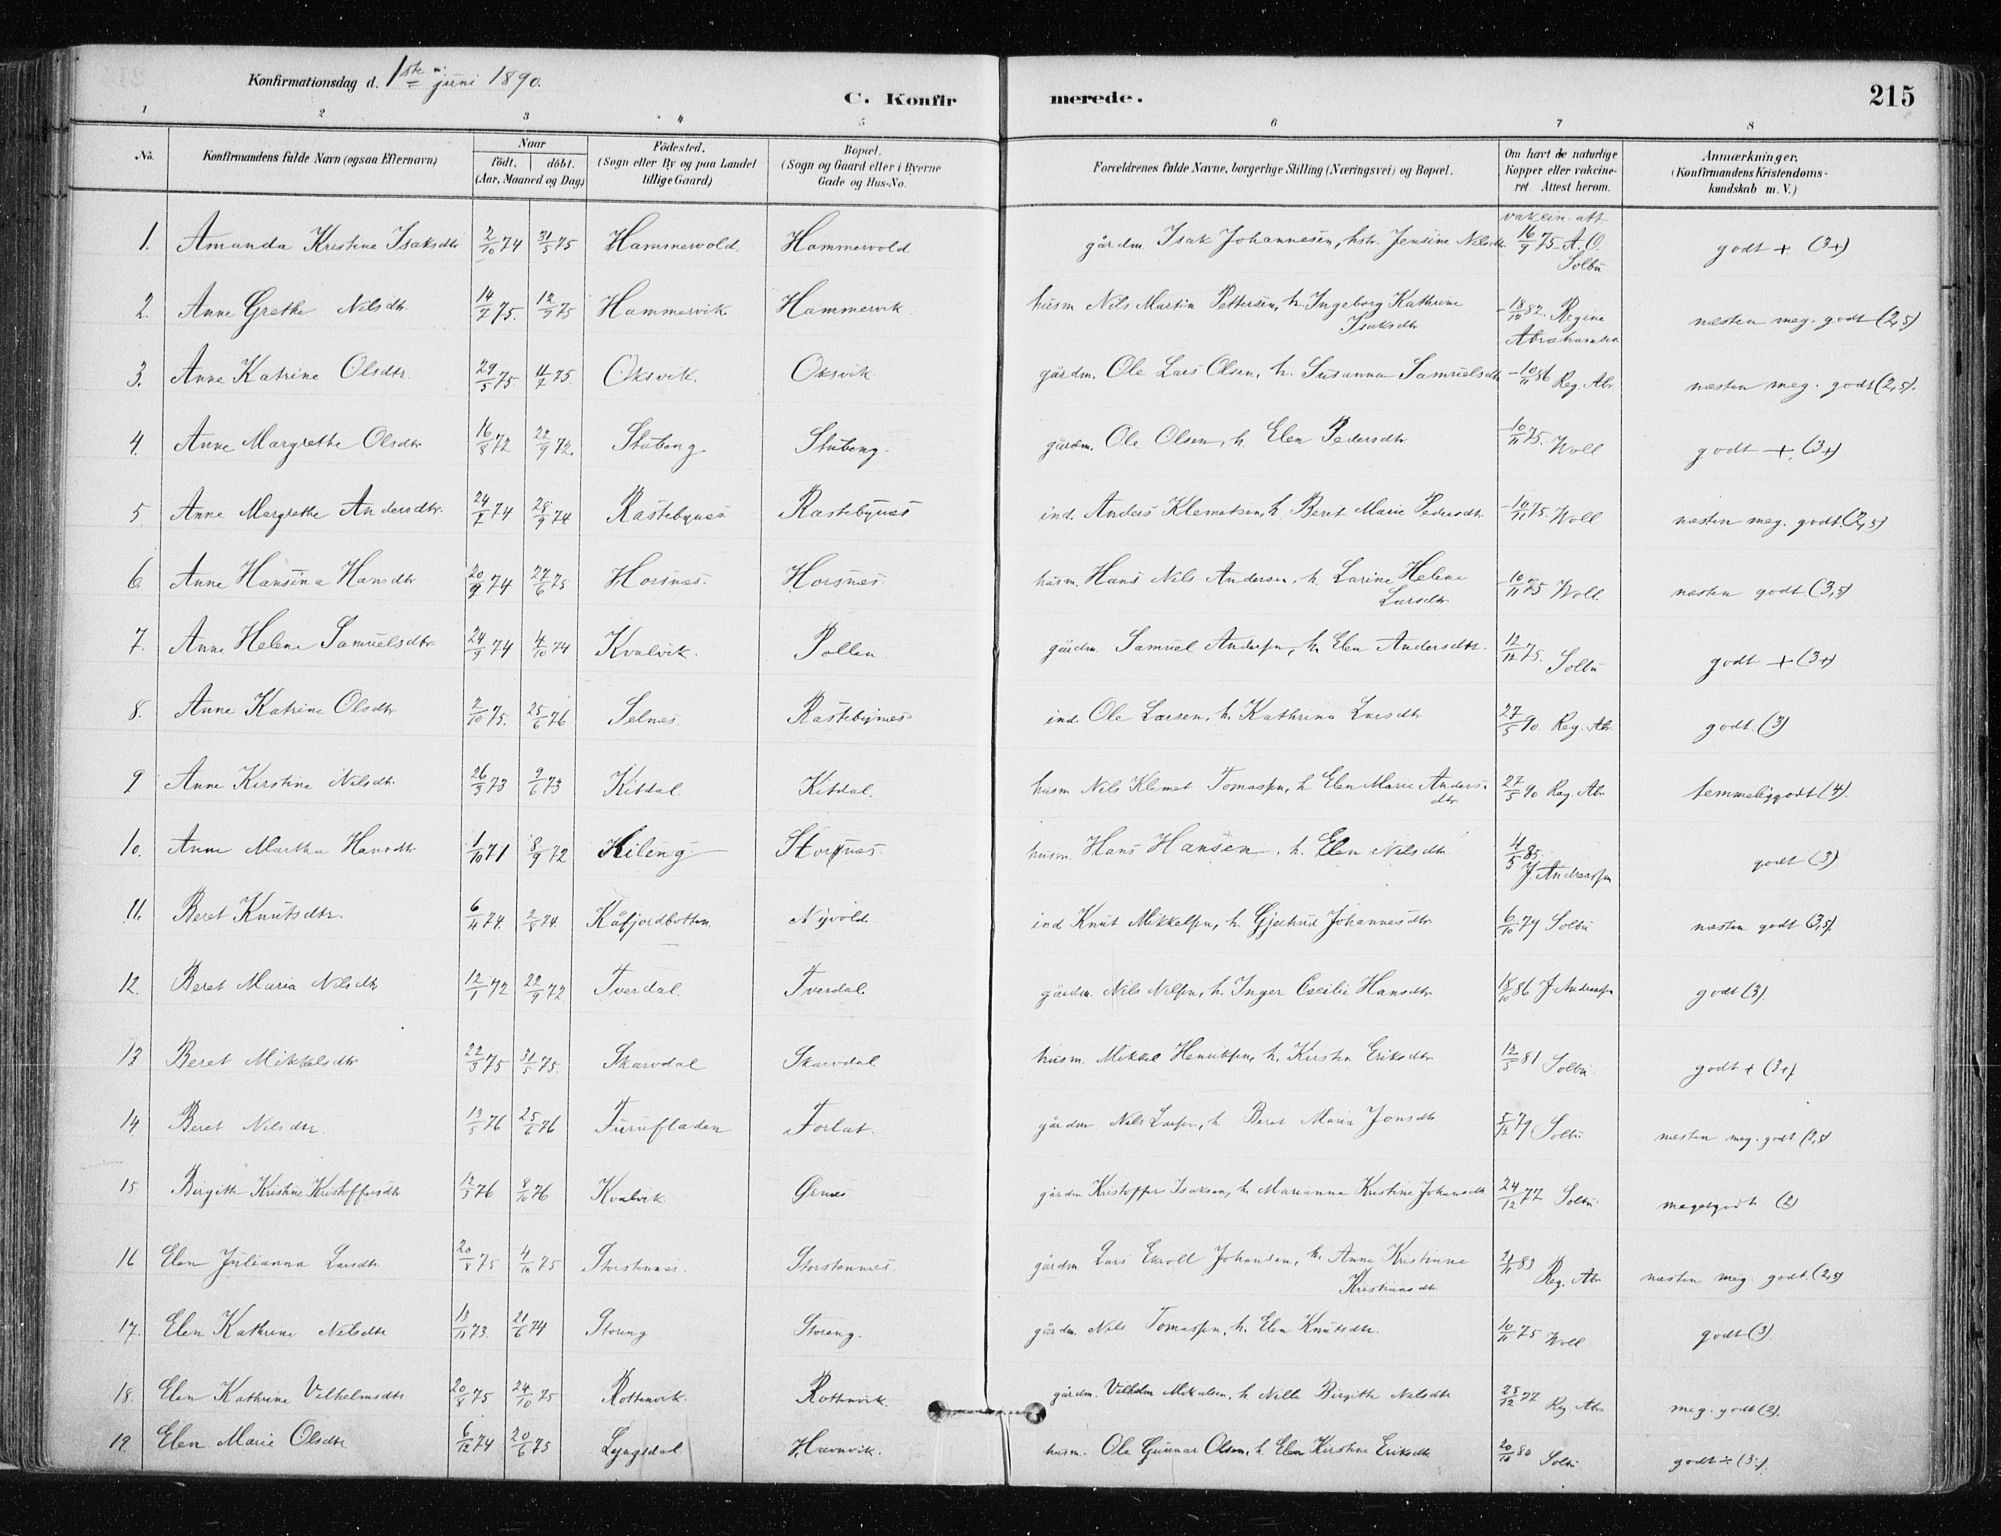 Konfirmationsdag d. 1ste juni 1890.
C. Konfirmerede.
215
1 2 3 4 5 6 7 8
No. Konfirmandens fulde Navn (ogsaa Efternavn) Naar födt. döbt. (Aar, Maaned og Dag) Födested. (Sogn eller By og paa Landet tillige Gaard) Bopæl. (Sogn og Gaard eller i Byerne Gade og Hus-No. Forældrenes fulde Navne, borgerlige Stilling (Næringsvei) og Bopæl. Om havt de naturlige Kopper eller vakcineret Attest herom. Anmærkninger, (Konfirmandens Kristendomskundskab m. V.)
1. Amanda Kristine Isaksdtr 2/10 74 31/5 75 Hammervold Hammervold gårdm. Isak Johannesen, hstr. Jensine Nilsdtr vakcin. att 16/9 75 A. O. Solbu godt + (3+)
2. Anne Grethe Nilsdtr 14/7 75. 12/9 75 Hammervik Hammervik husm Nils Martin Pettersen, h. Ingeborg Kathrine Isaksdtr 18/12 82. Regine Abrahamsen næsten meg. godt (2,5)
3. Anne Katrine Olsdtr 29/5 75 11/7 75 Oksvik. Oksvik gårdm. Ole Lars Olsen, h. Susanna Samuelsdtr 10/11 86 Reg. Abr næsten meg. godt (2,5).
4. Anne Margrethe Olsdtr 16/8 72 22/9 72. Stubeng Stubeng. gårdm. Ole Olsen, h. Elen Pedersdtr 10/11 75. Woll godt + (3+)
5 Anne Margrethe Andersdtr. 24/7 74 28/9 74 Rastebynes Rastebynes ind. Anders Klemetsen, h. Beret Marie Pedersdtr 10/11 75. Woll næsten meg. godt (2,5)
6 Anne Hansina Hansdtr 20/9 74 27/6 75 Horsnes. Horsnes. husm. Hans Nils Andersen, h. Larine Helene Larsdtr. 10/11 75 Woll næsten godt (3,5)
7. Anne Helene Samuelsdtr 24/9 74 4/10 74 Kvalvik. Pollen gårdm Samuel Anderssen, h. Elen Andersdtr. 12/12 75. Solbu godt + (3+)
8. Anne Katrine Olsdtr 2/10 75. 25/6 76 Selnes. Rastebynes ind. Ole Larsen, h. Kathrina Larsdtr 27/5 90. Reg. Abr. godt (3)
9 Anne Kirstine Nilsdtr. 26/3 73 2/6 73 Kitdal Kitdal. husm Nils Klemet Tomassen, h Elen Marie Andersdtr 27/5 90 Reg. Abr temmeliggodt (4).
10. Anne Martha Hansdtr 1/10 71 8/9 72 Kileng Horsnes. husm. Hans Hansen, h. Elen Nilsdtr 4/5 85. J. Anderssen godt (3)
11. Beret Knutsdtr. 6/4 74. 2/8 74. Kåfjordbotten Nyvold. ind. Knut Mikkelsen, h. Gjertrud Johannesdtr 6/10 79 Solbu næsten godt (3,5)
12. Beret Maria Nilsdtr 12/1 72 22/9 72 Tverdal. Tverdal. gårdm. Nils Nilssen, h. Inger Cecilie Hansdtr 18/10 86 J Anderssen godt (3).
13 Beret Mikkelsdtr 22/3 75 31/5 75. Skarvdal Skarvdal husm. Mikkel Henriksen, h. Kirsten Eriksdtr 12/5 81 Solbu godt + (3+)
14. Beret Nilsdtr. 13/5 76 25/6 76 Furufladen gårdm. Nils Larssen, h Beret Maria Jonsdtr 5/12 79 Solbu næsten meg. godt (2,5)
15. Birgitte Kristine Kristoffersdtr 12/5 76 8/10 76 Kvalvik Örnes gårdm Kristoffer Isaksen, h. Marianna Kristine Johansdtr 24/12 77 Solbu megetgodt (2)
16 Elen Julianna Larsdtr. 20/8 75 4/10 75 Storstennes. Storstennes. gårdm. Lars Johansen, h. Anne Kristianne Kristiansdtr. 83 Reg. Abr næsten meg. godt. (2,5)
17. Elen Kathrine Nilsdtr 13/11 73. 21/6 74 Storeng Storeng. gårdm. Nils Tomassen, h. Elen Knutsdtr. 10/11 75 Woll godt (3)
18. Elen Kathrine Vilhelmsdtr 20/8 75 24/10 75 Rottenvik. Rottenvik. gårdm. Vilhelm Mikalsen, h Nille Birgitte Nilsdtr 28/12 77 Reg. Abr meg. godt (2).
19. Elen Marie Olsdtr 6/12 74 20/6 75 Lyngsdal Havnvik. husm. Ole Gunnar Olsen, h. Elen Kirstine Eriksdtr 20/10 80 Solbu godt ÷ (3÷)